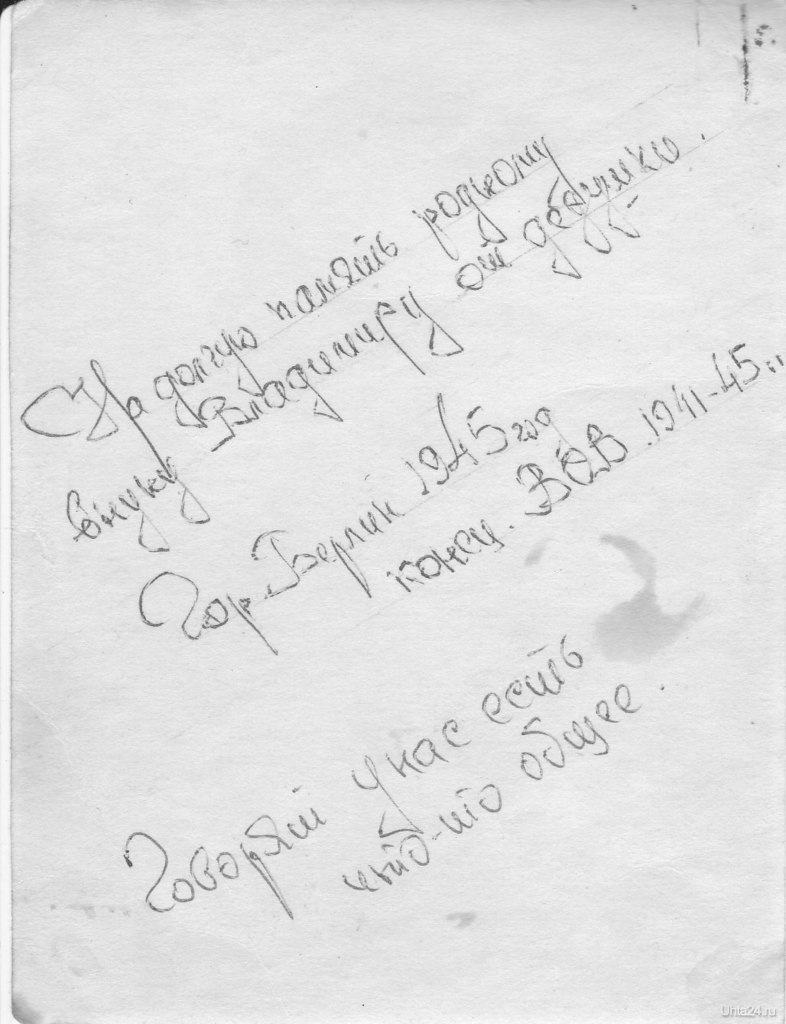 На долгую память родному
внуку Владимиру от дедушки.
Гор. Берлин 1945 год
конец. ВОВ. 1941-45г.
Говорят у нас есть
что-то общее.
Uhta24.ru